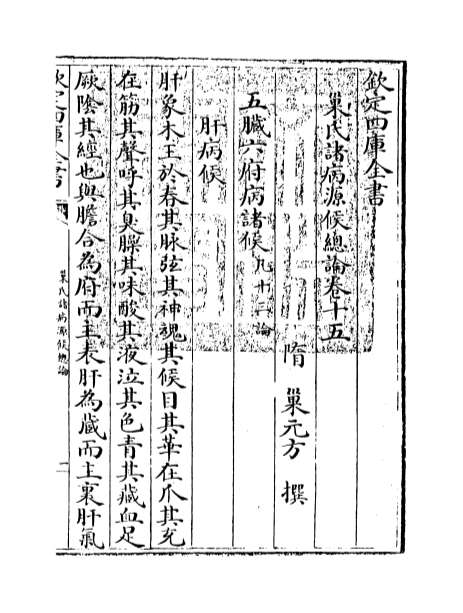 欽定四庫全書
巢氏諸病源候總論卷十五
隋 巢元方 撰
五臟六府病諸候凡十三論
肝病候
肝象木王於春其脉弦其神魂其候目其華在爪其充
在筋其聲呼其臭臊其味酸其液泣其色青其藏血足
厥陰其經也與膽合為府而主表肝為藏而主裏肝氣
欽定四庫全書
巢氏諸病源候總論
一